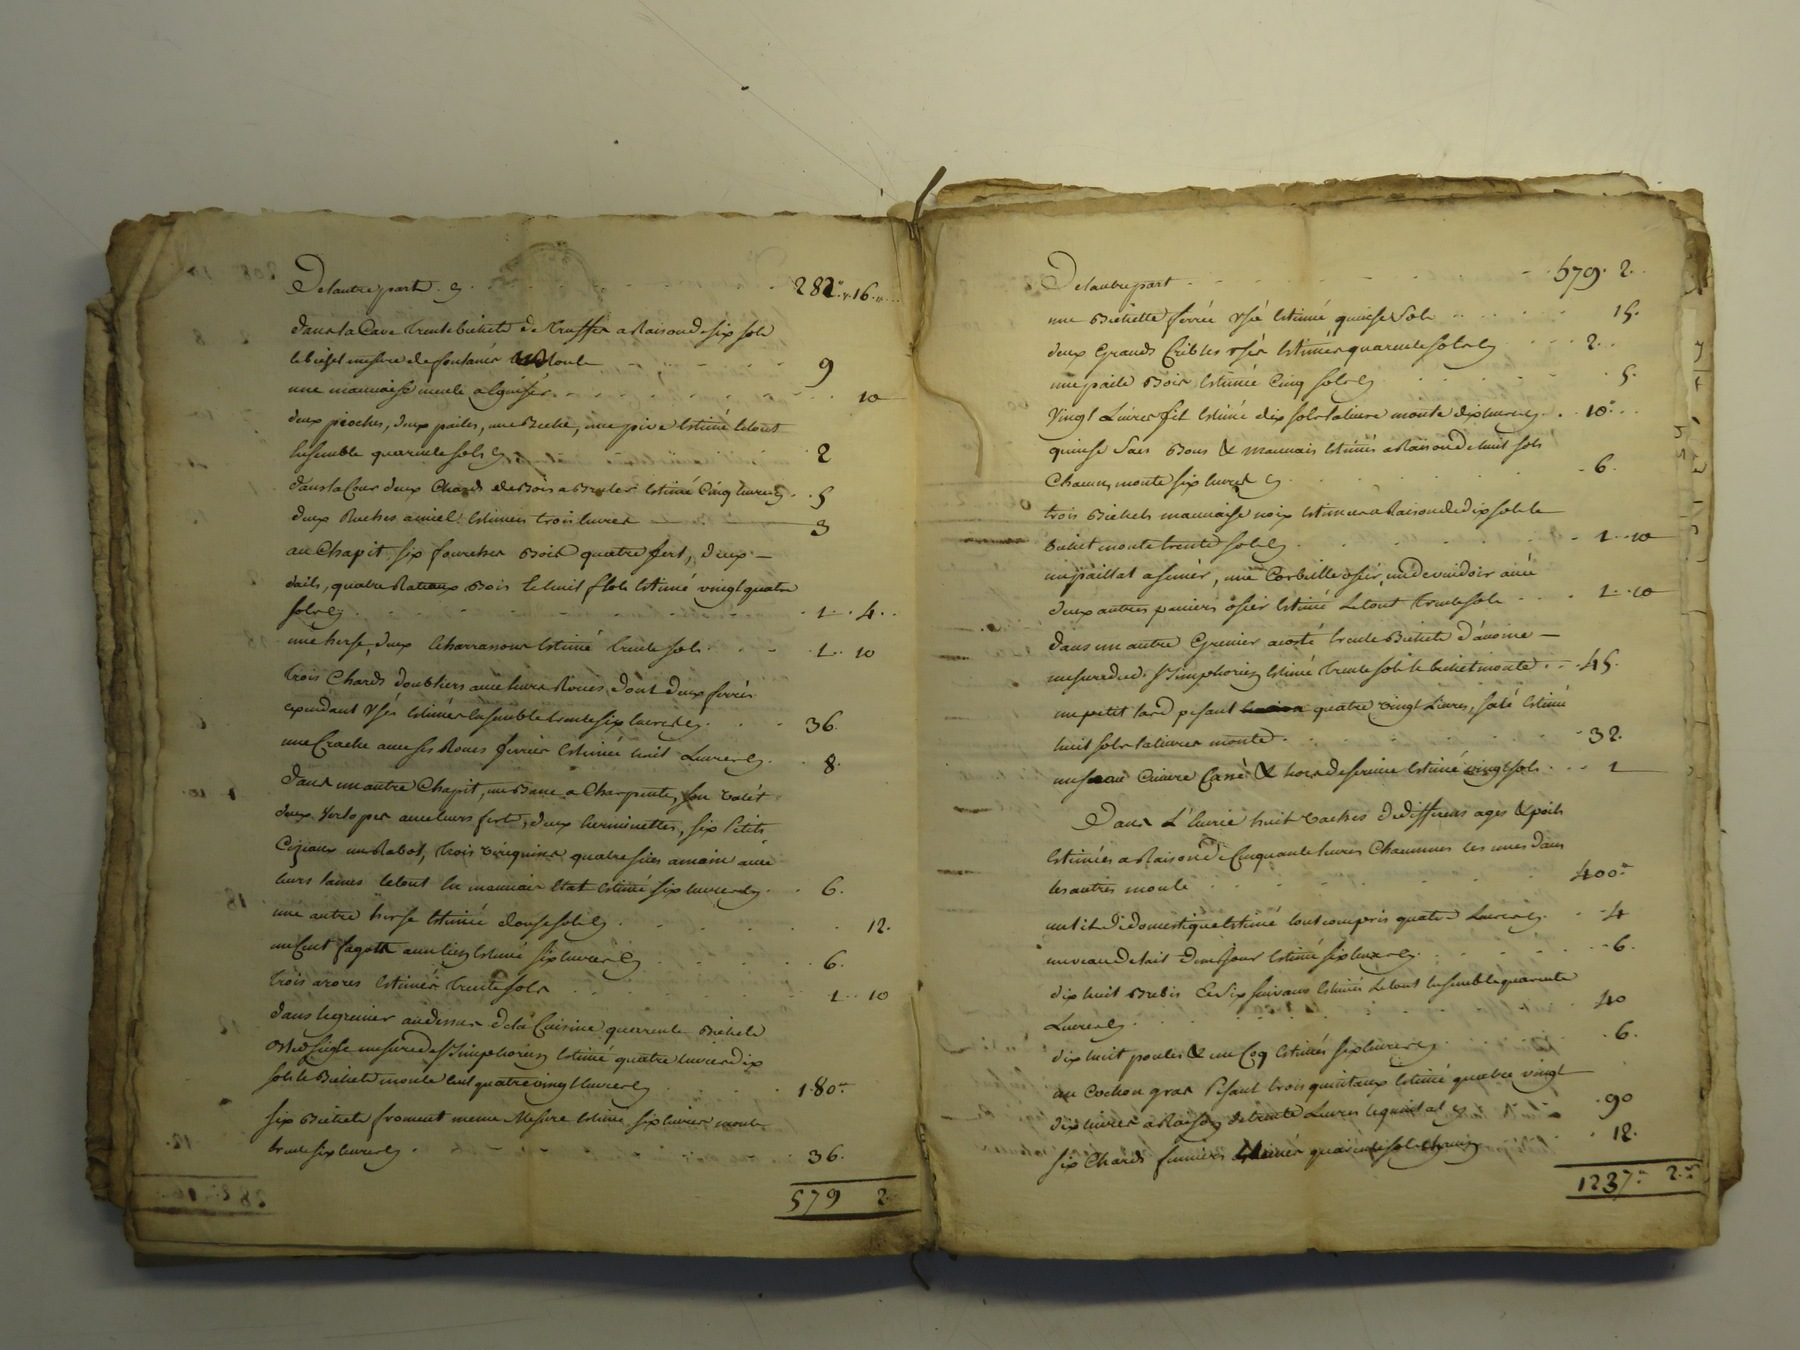 De lautre part. 282.. 16..
dans la Cave trente bichets de truffes a Raison de six sols
le bichet mesure de fontanès monte 9
une mauvaise meule a eguiser 10
deux pioches, deux pailes, une Beche, une pive Estimé le tout
Ensemble quarente sols 2
dans la Cour deux Chards de Bois a Bruler Estimé Cinq livres 5
deux Ruches a miel Estimées trois livres 3
au Chapit six fourches Bois quatre fert, deux
dails, quatre Rateaux Bois le huit flots Estimé vingt quatre
sols 1.. 4..
une herse, deux Echarrasons Estimé trente sols 1.. 10
trois Chards doubliers avec leurs Roues, dont deux ferrés
cependant Usés Estimés Ensemble trente six livres 36
une Crache avec ses Roues ferrées Estimée huit Livres 8
Dans un autre Chapit, un Banc a Charpente, son valét
deux Verlopes avec leurs ferts, deux herminettes, six Petits
Cizeaux un Rabot, trois virequins quatre sies a main avec
leurs lames le tout En mauvais Etat Estimé six livres 6.
une autre herse Estimée douse sols 12.
un Cent fagots Estimé six livres 6.
trois arores Estimés trente sols 1.. 10
dans le grenier au dessus de la Cuisine quarente Bichets
Bled seigle mesure de St Simphorien Estimé quatre livres dix
sols le Bichets monte Cent quatre vingt livres 180
six Bichets froment meme Mesure Estimé six livres monte
trente six livres 36.
579 2.
De lautre part 579. 2..
une Bichette ferrée Usée Estimé quinse sols 15.
deux Grands Cribles Usés Estimés quarente sols 2..
une paile Bois Estimée Cinq sols 5.
Vingt Livres fil Estimé dix sols la livre monte dix livres 10
quinse Sacs Bons & Mauvais Estimés a Raison de huit sols
Chacun monte six livres 6.
trois Bichets mauvaise noix Estimés a Raison de dix sols le
bichet monte trente sols 1.. 10
un paillat a semer, une Corbeille osier, un devindoir avec
deux autres paniers osier Estimé Le tout trente sols 1.. 10
Dans un autre Grenier a coté trente Bichets d'avoine
mesure dud. St Simphorien Estimé trente sols le bichet monte 45.
un petit lard pesant quatre vingt Livres, salé Estimé
huit sols la livre monte 32.
un seau Cuivre Cassé & hors de service Estimé vingt sols 1
Dans L'Ecurie huit vaches de differens ages & poils
Estimées a Raison de Cinquante livres Chacunnes les unes dans
les autres monte 400
un lit de domestique Estimé tout compris quatre Livres 4
un veau de lait Estimé six livres 6.
dix huit Brebis & six suivans Estimés Le tout Ensemble quarente
Livres 40
dix huit poules & un Coq Estimés six livres 6.
un Cochon gras Pesant trois quintaux Estimé quatre vingt
dix livres a Raison de trente Livres le quintal 90
six Chards fumiers Estimés quarente sols chacun 12.
1237 2.